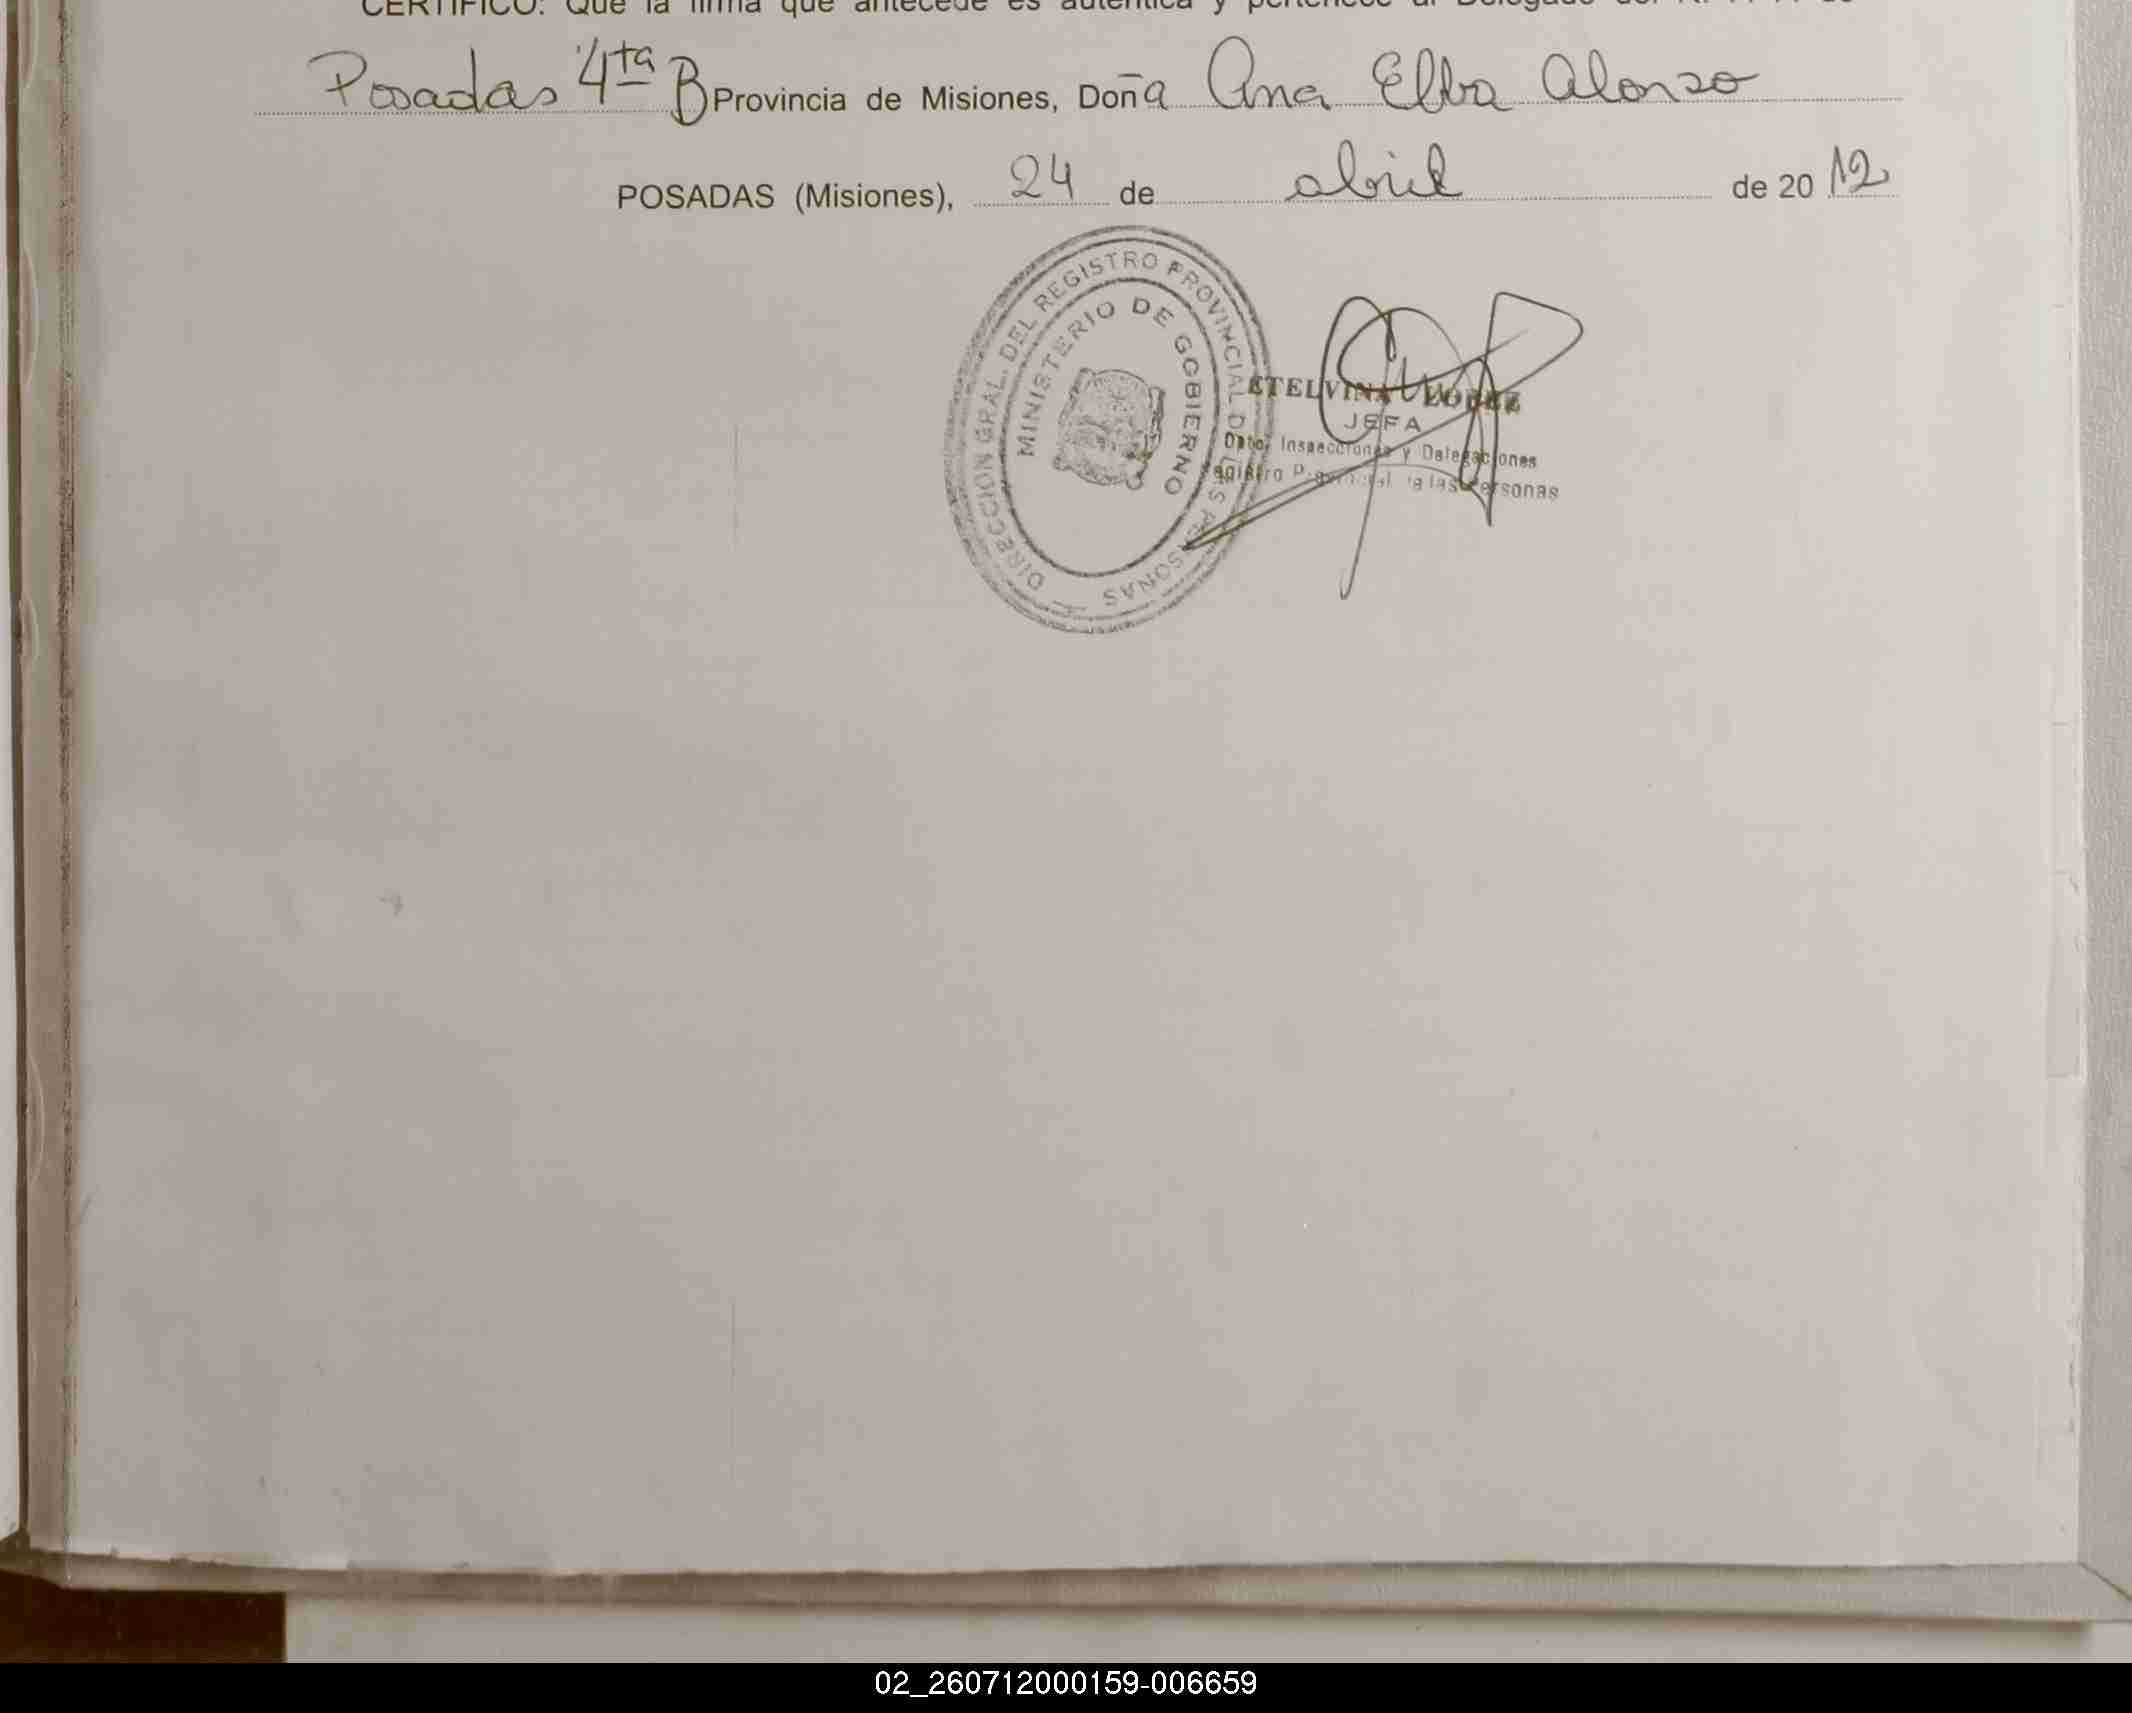 CERTIFICO: Que la firma que antecede es auténtica y pertenece al Delegado del R. P. P. de
Posadas 4ta B Provincia de Misiones, Doña Ana Elba Alonzo
POSADAS (Misiones), 24 de abril de 2012
DIRECCION GRAL. DEL REGISTRO PROVINCIAL DE LAS PERSONAS
MINISTERIO DE GOBIERNO
ETELVINA LOPEZ
JEFA
Dpto. Inspecciones y Delegaciones
Registro Provincial de las Personas
02_260712000159-006659